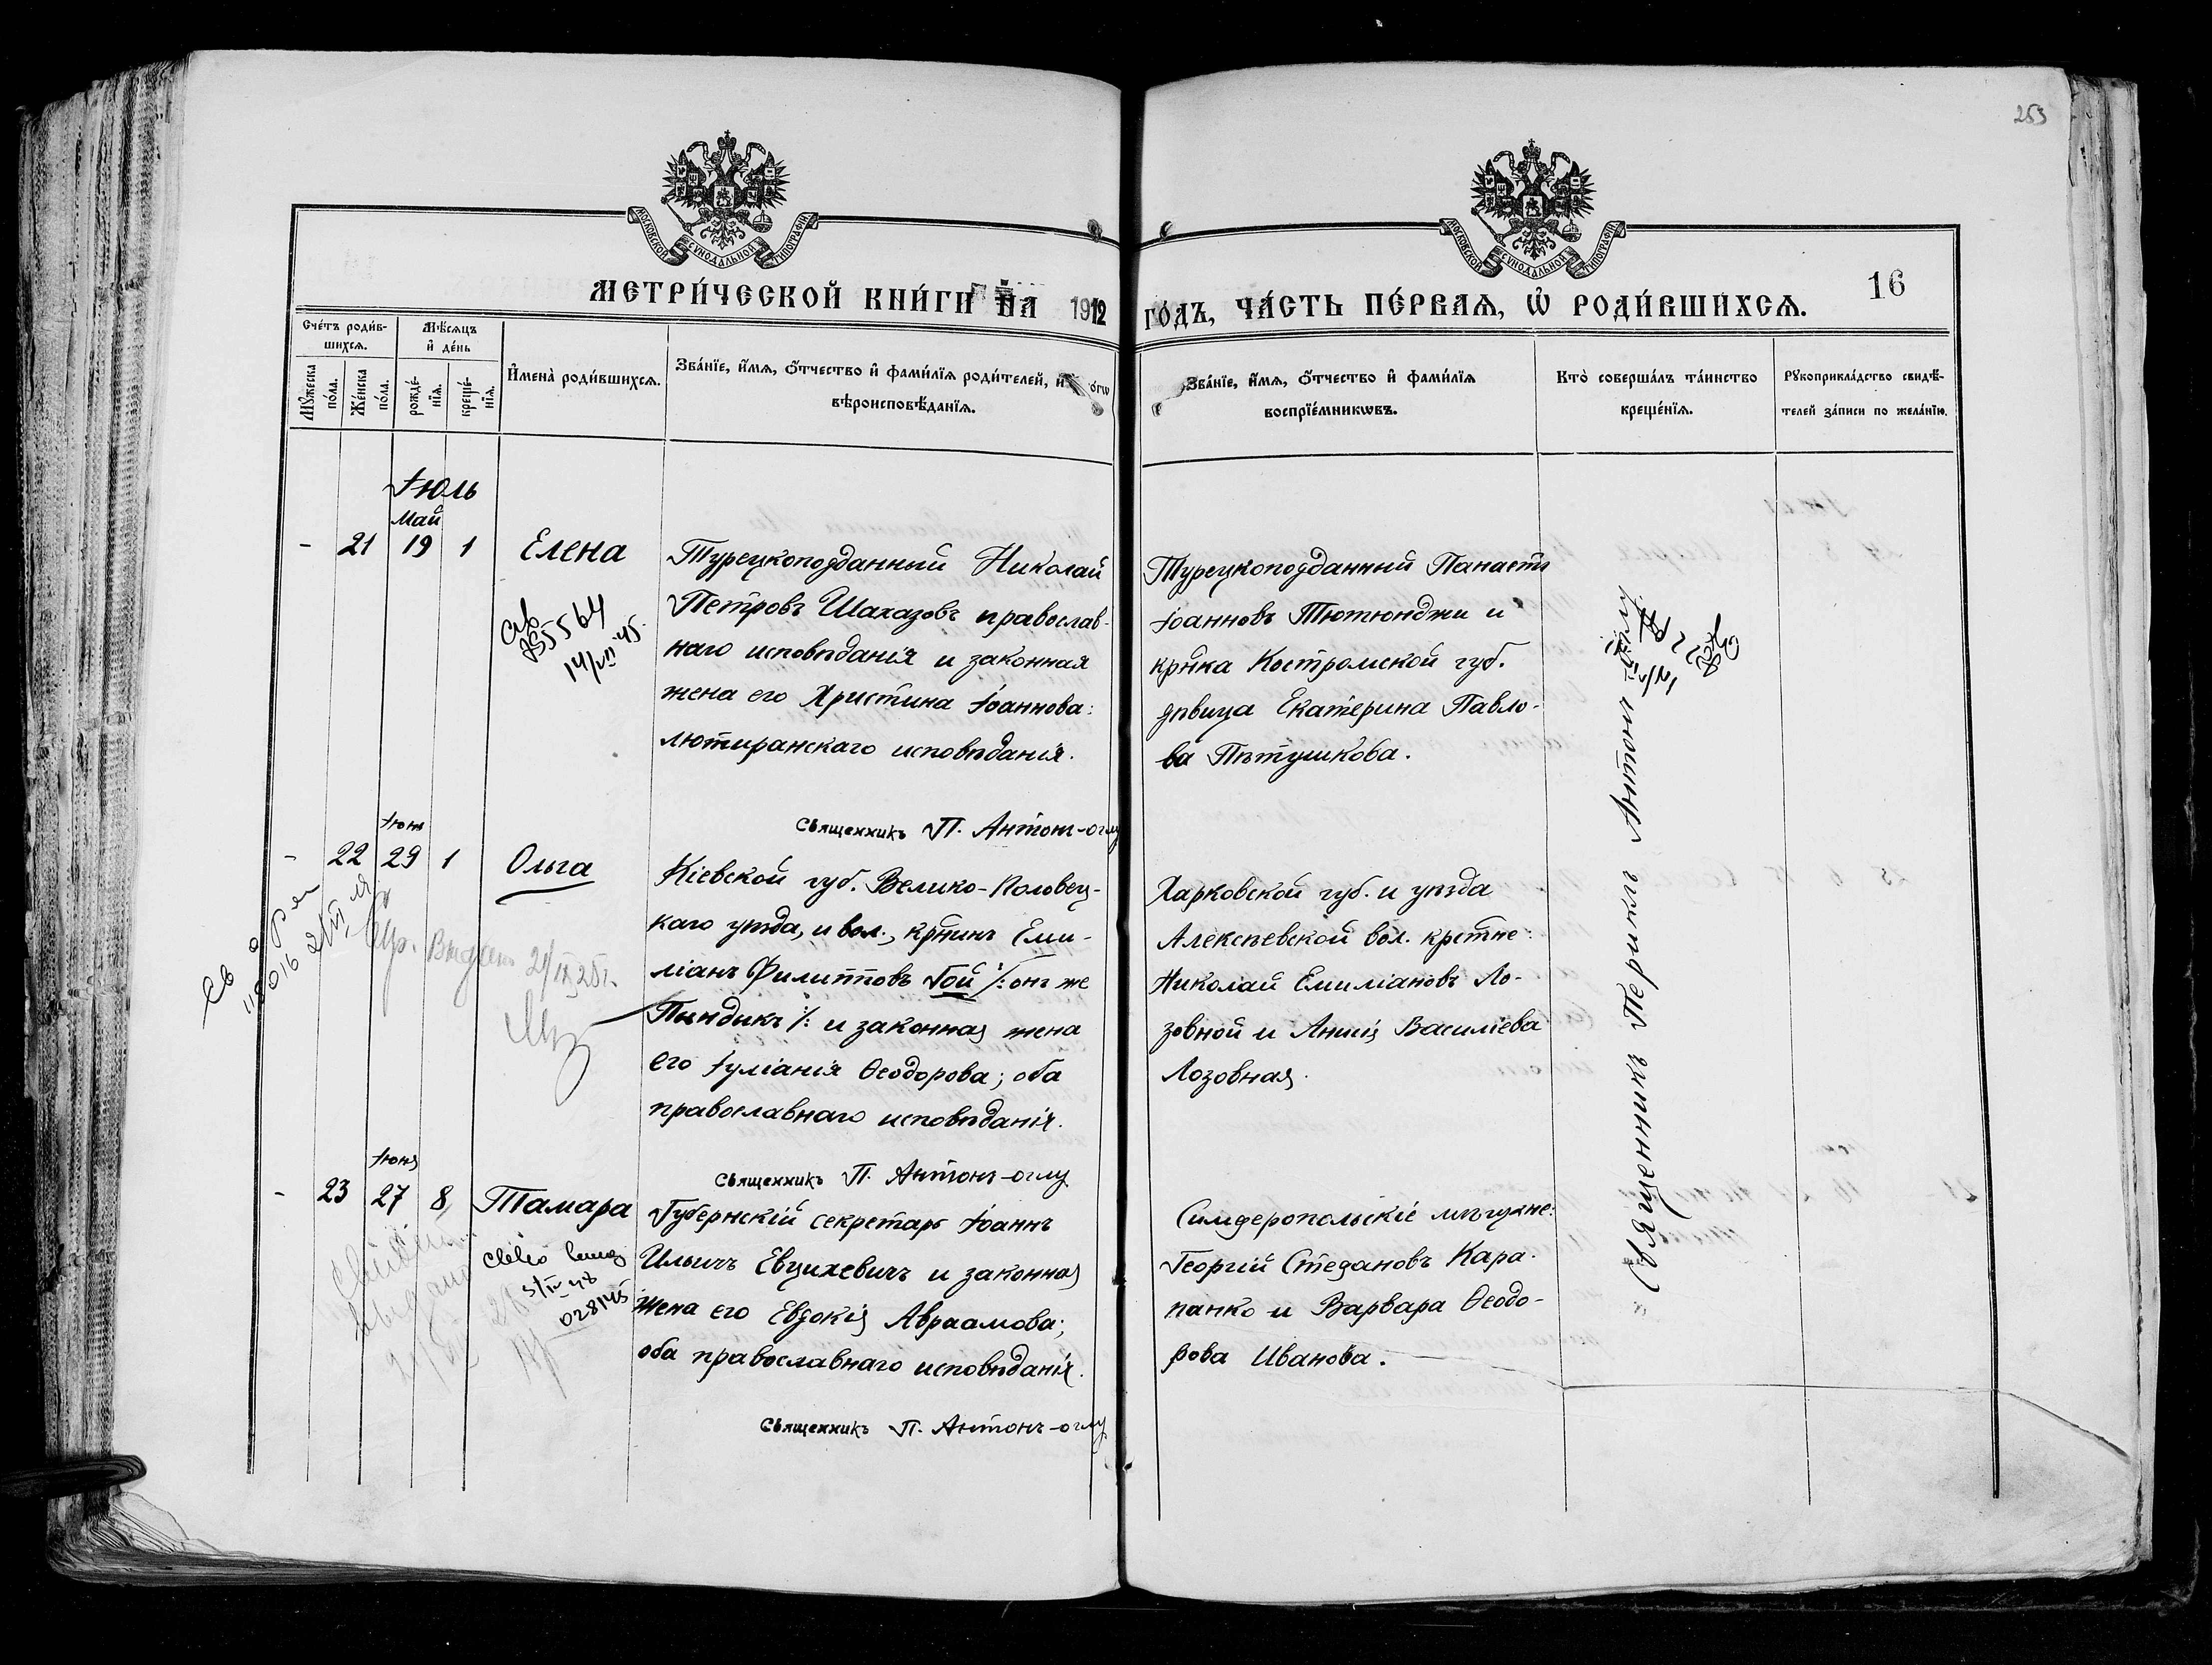 253
МОСКОВСКОЙ СУНОДАЛЬНОЙ ТИПОГРАФІИ
МОСКОВСКОЙ СУНОДАЛЬНОЙ ТИПОГРАФІИ
МЕТРИ́ЧЕСКОЙ КНИ́ГИ НА 1912
ГО́ДЪ, ЧА́СТЬ ПЕ́РВАЯ, Ѡ҆ РОДИ́ВШИХСЯ.
16
Сче́тъ роди́в-
шихся.
Мѣ́сяцъ
и҆ де́нь
Мꙋ́жеска
по́ла.
Же́нска
по́ла.
рожде́-
нїя.
креще́-
нїя.
И҆мена̀ роди́вшихся.
Зва́нїе, и҆́мя, ѻ҆́тчество и҆ фамѝлїя роди́телей, и҆
вѣроисповѣ́данїя.
Зва́нїе, и҆́мя, ѻ҆́тчество и҆ фами́лїя
воспрїе́мникѡвъ.
Кто̀ соверша́лъ та́инство
креще́нїя.
Рꙋкоприкла́дство свидѣ́-
телей за́писи по жела́нїю.
Іюль
Май
- 21 19 1 Елена
Турецкоподданный Николай
Петровъ Шахазовъ православ-
наго исповѣданія и законная
жена его Христина Іоаннова:
лютиранскаго исповѣданія.
Священникъ П. Антонъ-оглу
Турецкоподданный Панаетъ
Іоанновъ Тютюнджи и
крнка Костромской губ.
дѣвица Екатерина Павло-
ва Пѣтушкова.
14/VII 45.
Іюня
- 22 29 1 Ольга
Кіевской губ. Велико-Половец-
каго уѣзда, и вол., крнинъ Еми-
ліанъ Филипповъ Гой /: онъ же
Пындикъ :/ и законная жена
его Іуліанія Ѳеодорова; оба
православнаго исповѣданія.
Священникъ П. Антонъ-оглу
Харковской губ. и уѣзда
Алексѣевской вол. крстне:
Николай Емиліановъ Ло-
зовной и Анна Василіева
Лозовная.
Іюня
- 23 27 8 Тамара
Губернскій секретарь Іоаннъ
Ильичъ Евцихевичъ и законная
жена его Евдокія Авраамова;
оба православнаго исповѣданія.
Священникъ П. Антонъ-оглу
Симферопольскіе мѣщане:
Георгій Стефановъ Кара-
панко и Варвара Ѳеодо-
рова Иванова.
5/IV 48
028145
Священникъ Периклъ Антонъ-оглу